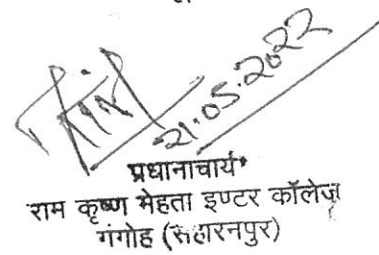 21.05.2022
प्रधानाचार्य
राम कृष्ण मेहता इण्टर कॉलेज
गंगोह (सहारनपुर)